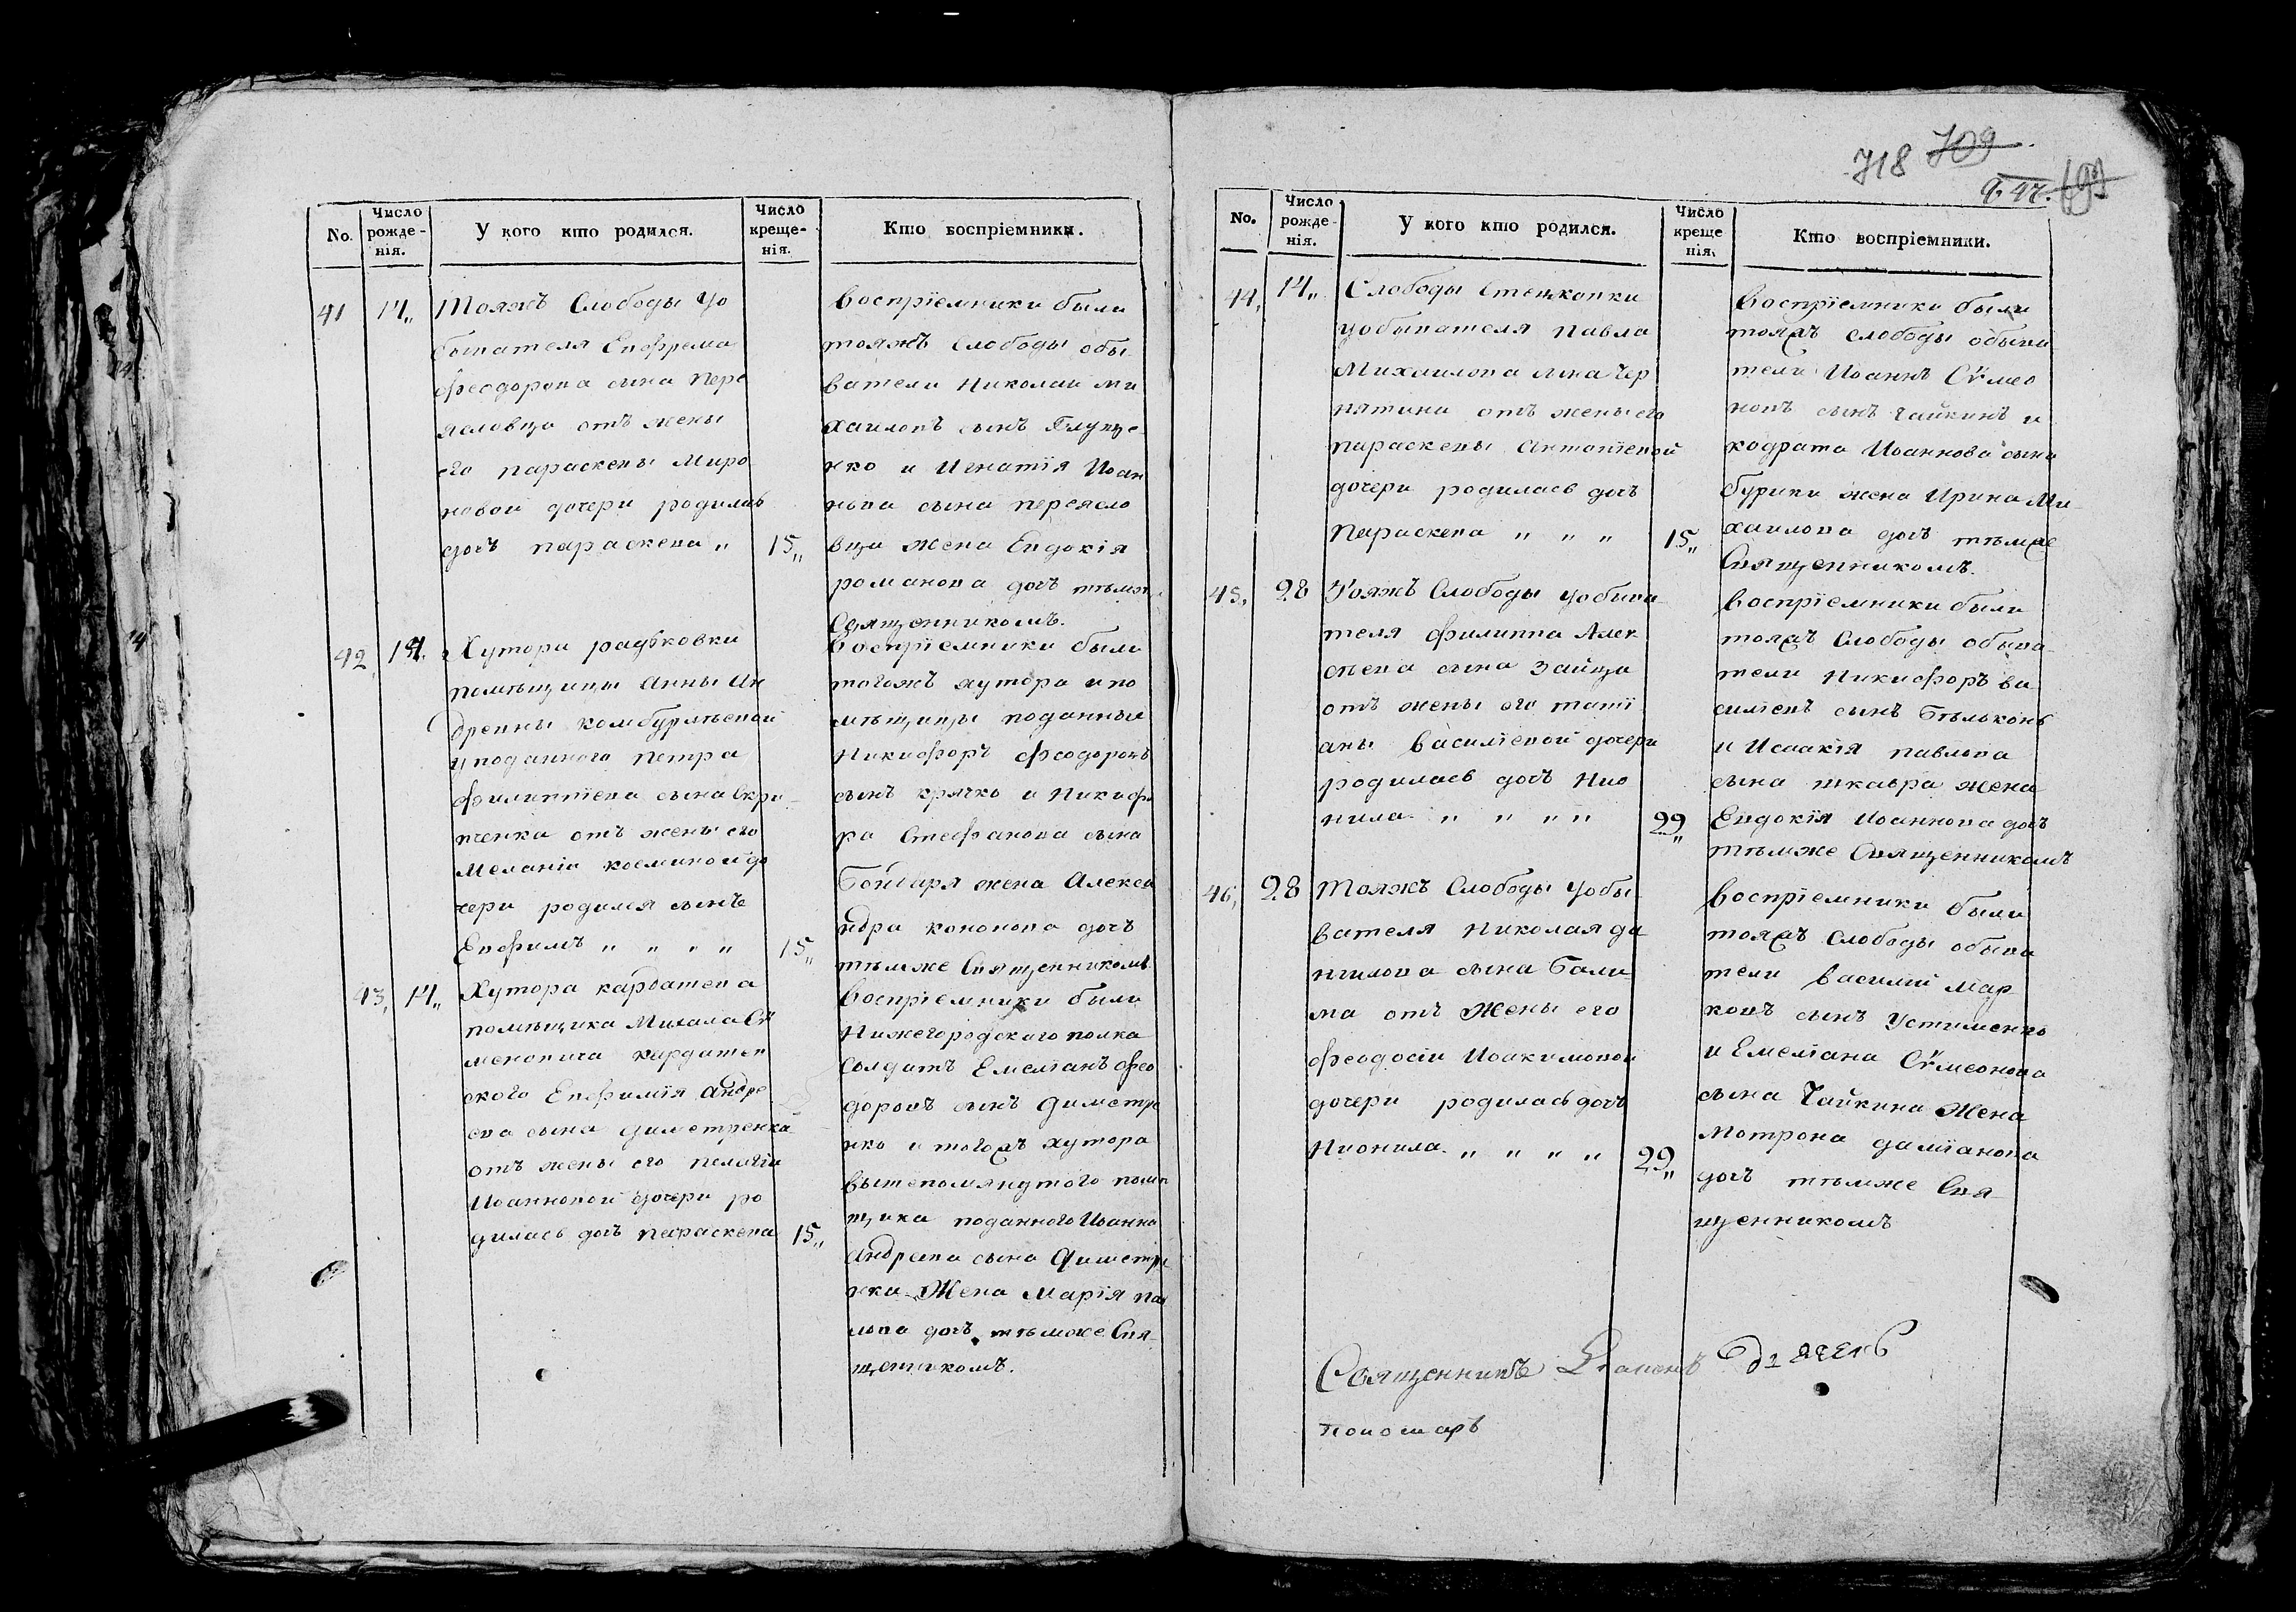 718 709
No.
Число рожде-нія.
У кого кто родился.
Число креще-нія.
Кто воспріемники.
41
14„
Тояжъ Слободы уо
бывателя Евфрема
Феодорова сына Пере
ясловца отъ жены
его параскевы Миро
новой дочери родилась
дочъ параскева „
15„
воспрїемники были
тояжъ Слободы обы-
ватели Николай ми
хайловъ сынъ Глуще-
нко и Игнатїя Иоан
нова сына переясло
вца жена Евдокїя
романова дочъ тѣмж
Священникомъ.
42
14.
Хутора радьковки
помѣщицы Анны Ан
древны комбурлѣевой
уподанного петра
Филиппїева сына Скри-
пченка отъ жены его
Меланіи космивой до
чери родился сынъ
Евфимъ „ „ „ „
15„
воспрїемники были
тогожъ хутора и по
мѣщицы поданные
Никифоръ Феодоровъ
сынъ крячко и Никифо
ра Стефанова сына
Бондаря жена Алекса
ндра кононова дочъ
тѣмже Священникомъ
43,
14„
Хутора кардашева
помѣщика Михала Сѵ
меновича кардашев
ского Евфимїя андре
ева сына диметренка
отъ жены его пелагіи
Иоанновой дочери ро
дилась дочъ параскева
15„
воспрїемники были
Нижегородского полка
Солдатъ Емелїанъ Фео
доровъ сынъ Диметре
нко и тогожъ хутора
вышепомянутого помѣ
щика поданного Иоанна
андреева сына Диметре
нка Жена Марїя пав
лова дочъ тѣмже Свя-
щенникомъ.
No.
Число рожде-нія.
У кого кто родился.
Число креще нія.
Кто воспріемники.
44,
14„
Слободы Степковки
уобывателя павла
Михайлова сина Чер
нятини отъ жены его
параскевы Антонїевой
дочери родилась дочъ
Параскева „ „ „
15„
воспрїемники были
тояжъ слободы обыва
тели Иоаннъ Сѵмео
новъ сынъ чайкинъ и
кодрата Иоаннова сына
бурики жена Ирина Ми-
хайлова дочъ тѣмже
Священникомъ.
45,
28
Тояжъ Слободы уобива-
теля филиппа Алек
сѣева сына Зайца
отъ жены его татї
аны василїевой дочери
родилась дочъ Нио
нила „ „ „ „
29„
воспрїемники были
тояжъ Слободы обыва-
тели Никифоръ ва
силїевъ сынъ Бѣлькопъ
и Исаакїя павлова
сына ткавра жена
Евдокїя Иоаннова дочъ
тѣмже Священникомъ
46,
28
Тояжъ Слободы уобы
вателя Николая да
ниилова сына Бали
ма отъ Жены его
Феодосіи Иоакимовой
дочери родилась дочъ
Нионила „ „ „ „
29„
воспрїемники были
тояжъ Слободы обыва
тели василїй Мар
ковъ сынъ Устименко
и Емелїана Сѵмеонова
сына Чайкина Жена
Мотрона дамїанова
дочъ тѣмже Свя-
щенникомъ
Священникъ
пономаръ